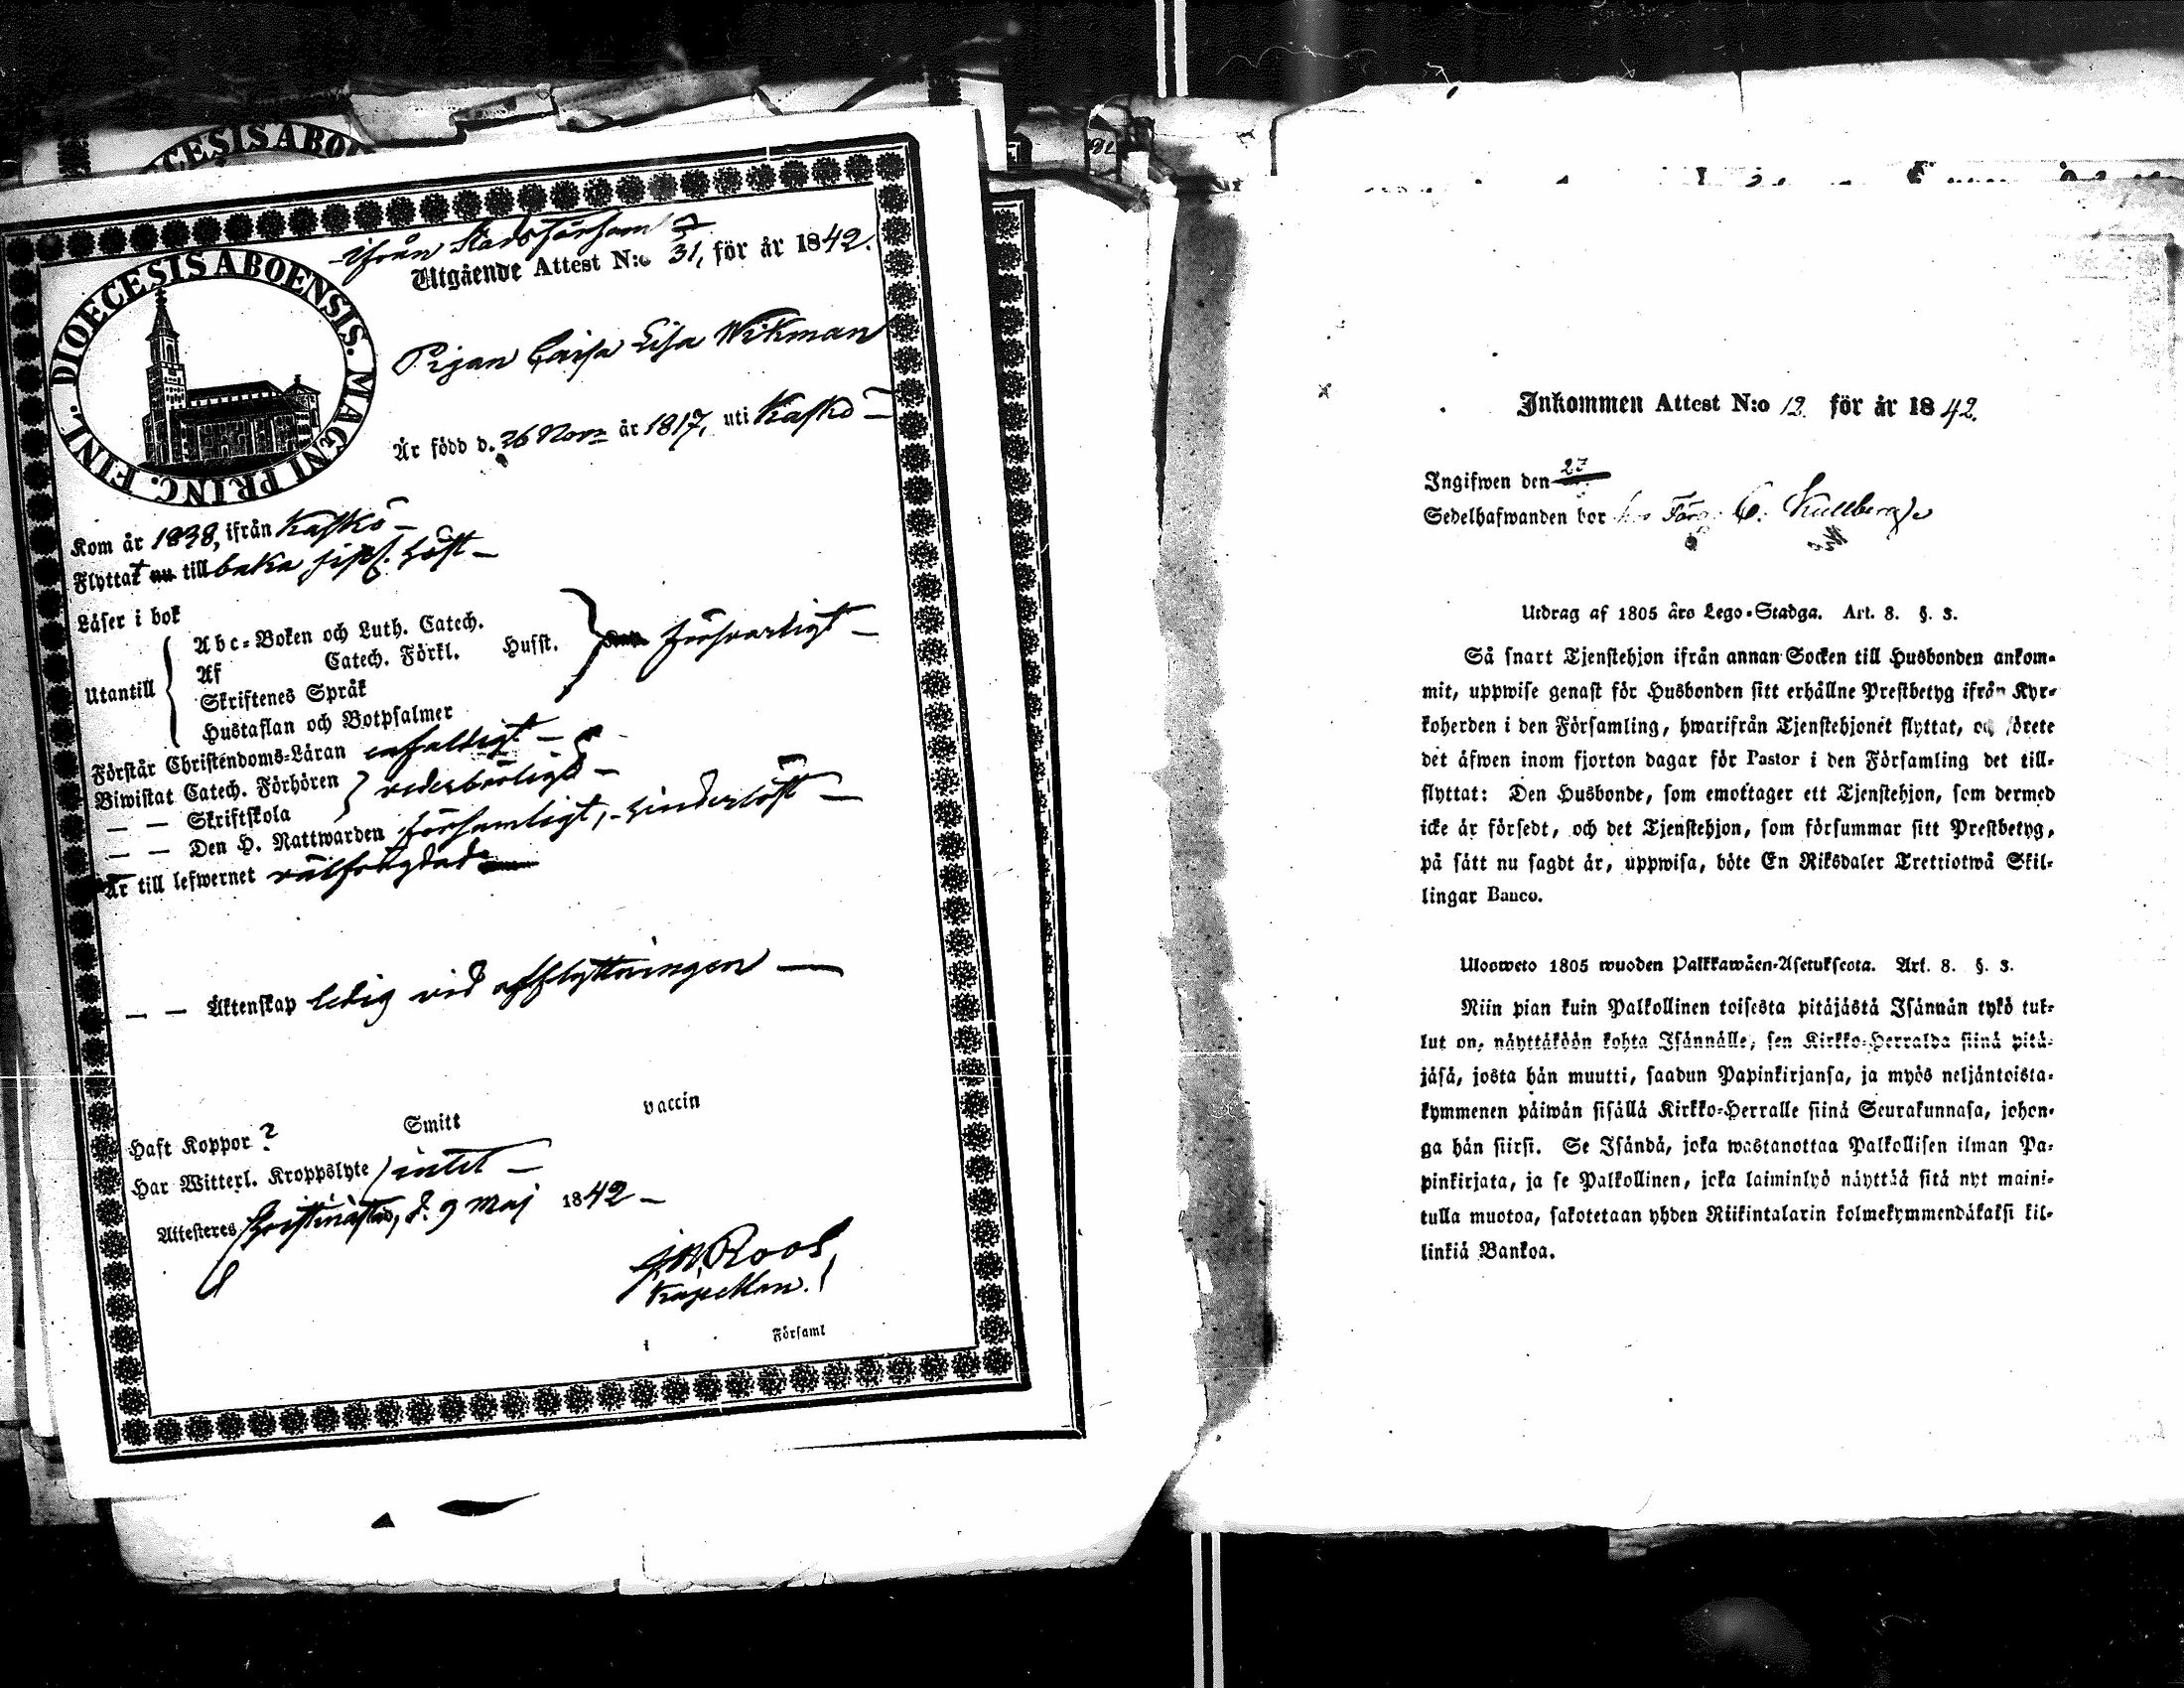 DIOECESIS ABO
DIOECESIS ABOENSIS. MAGNI PRINC. FINL.
ifrån Stads församl
Utgående Attest N:o 31, för år 1842.
Pigan Caisa Lisa Wikman
Är född d. 26 Nov: år 1817, uti Kaskö –
Kom år 1838, ifrån Kaskö –
Flyttat nu tillbaka sistl. höst –
Läser i bok
Utantill
Abc-Boken och Luth. Catech.
Af Catech. Förkl. Husst.
Skriftenes Språk
Hustaflan och Botpsalmer
försvarligt –
Förstår Christendoms-Läran enfaldigt –
Biwistat Catech. Förhören
— — Skriftskola
vederbörligt –
— — Den H. Nattwarden församligt, – hinderlöst –
Är till lefwernet välfrägdad
— — Äktenskap ledig vid afflyttningen —
Haft Koppor ? Smitt vaccin
Har Witterl. Kroppslyte intet –
Attesteres Christinæstad, d. 9 Maj 1842 –
J.W. Roos,
Kapellan.
i Församl
Inkommen Attest N:o 12 för år 1842.
Ingifwen den 27
Sedelhafwanden bor hos Färg: C. Kullberg
Utdrag af 1805 års Lego-Stadga. Art. 8. §. 3.
Så snart Tjenstehjon ifrån annan Socken till Husbonden ankom-
mit, uppwise genast för Husbonden sitt erhållne Prestbetyg ifrån Kyr-
koherden i den Församling, hwarifrån Tjenstehjonet flyttat, och förete
det äfwen inom fjorton dagar för Pastor i den Församling det till-
flyttat: Den Husbonde, som emottager ett Tjenstehjon, som dermed
icke är försedt, och det Tjenstehjon, som försummar sitt Prestbetyg,
på sätt nu sagdt är, uppwisa, böte En Riksdaler Trettiotwå Skil-
lingar Banco.
Ulosweto 1805 wuoden Palkkawäen-Asetuksesta. Art. 8. §. 3.
Niin pian kuin Palkollinen toisesta pitäjästä Isännän tykö tul-
lut on, näyttäköön kohta Isännälle, sen Kirkko-Herralda siinä pitä-
jäsä, josta hän muutti, saadun Papinkirjansa, ja myös neljäntoista-
kymmenen päiwän sisällä Kirkko-Herralle siinä Seurakunnasa, johon-
ga hän siirsi. Se Isändä, joka wastanottaa Palkollisen ilman Pa-
pinkirjata, ja se Palkollinen, joka laiminlyö näyttää sitä nyt maini-
tulla muotoa, sakotetaan yhden Riikintalarin kolmekymmendäkaksi kil-
linkiä Bankoa.